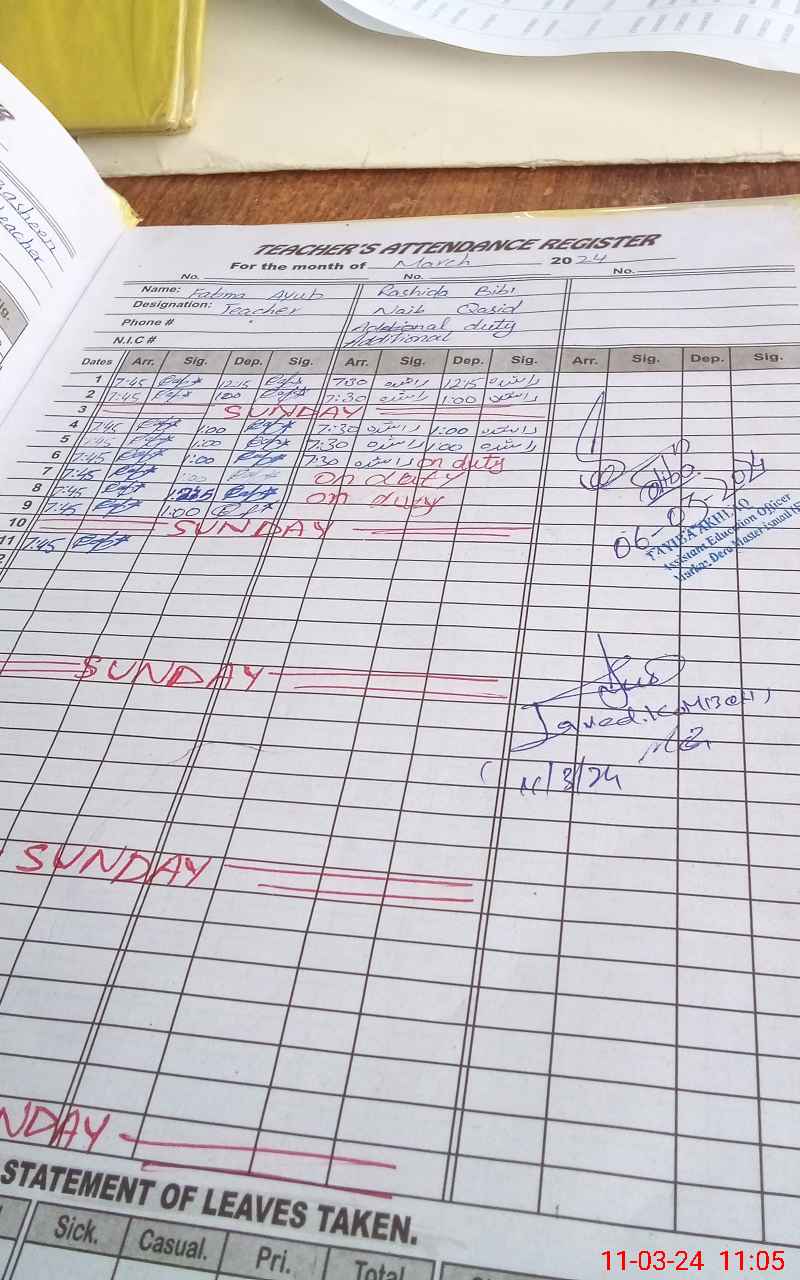 TEACHER'S ATTENDANCE REGISTER
For the month of March 2024
No. No. No.
Name: Fatima Ayub Rashida Bibi
Designation: Teacher Naib Qasid
Phone # Additional duty
N.I.C # Additional
Dates Arr. Sig. Dep. Sig. Arr. Sig. Dep. Sig. Arr. Sig. Dep. Sig.
1 7:45 12:15 7:30 راشدہ 12:15 راشدہ
2 7:45 1:00 7:30 راشدہ 1:00 راشدہ
3 SUNDAY
4 7:45 1:00 7:30 راشدہ 1:00 راشدہ
5 7:45 1:00 7:30 راشدہ 1:00 راشدہ
6 7:45 1:00 7:30 راشدہ on duty
7 7:45 1:00 on duty
8 7:45 on duty
9 7:45 1:00
10 SUNDAY
11 7:45
06-03-2024
TAYIBA AKHLAQ
Assistant Education Officer
Markaz Dera
SUNDAY
11/3/24
SUNDAY
NDAY
STATEMENT OF LEAVES TAKEN.
Sick. Casual. Pri. Total
11-03-24 11:05